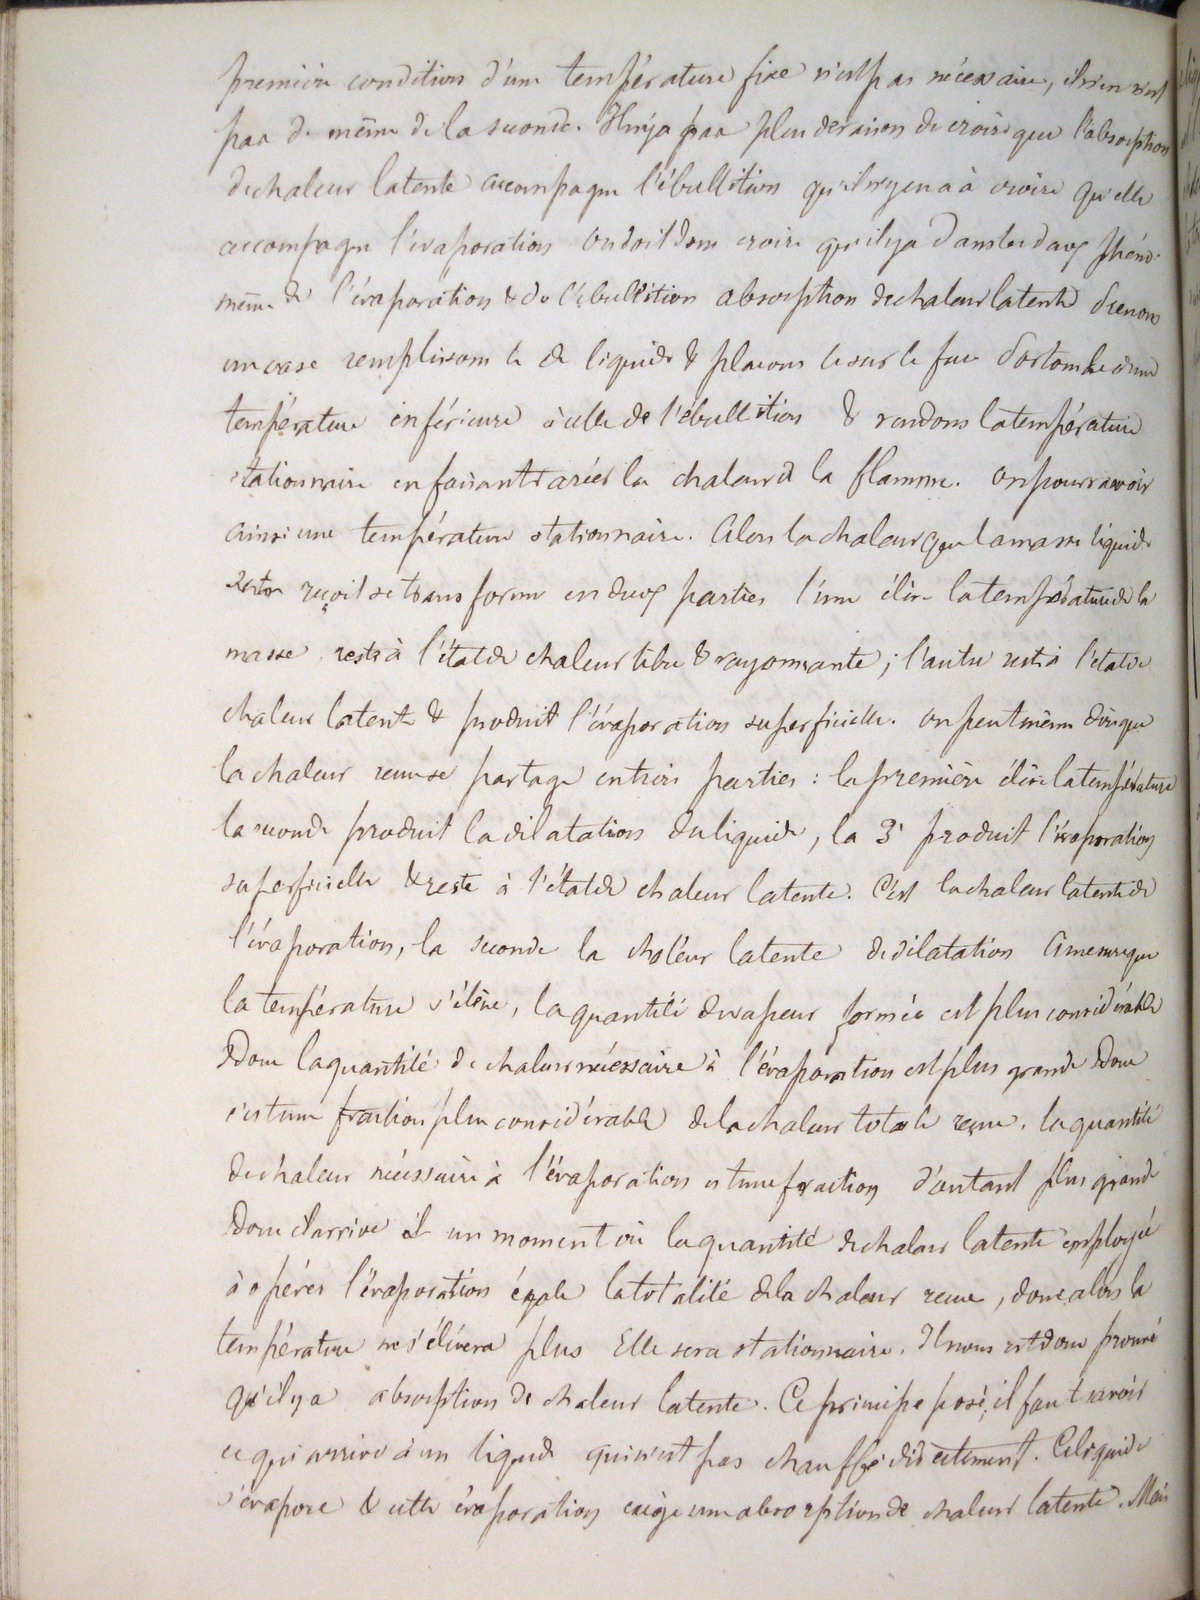 première condition d'une température fixe n'est pas nécessaire, il n'en est
pas de même de la seconde. Il n'y a pas plus de raison de croire que l'absorption
de chaleur latente accompagne l'ébullition qu'il n'y en a à croire qu'elle
accompagne l'évaporation on doit donc croire qu'il y a dans les deux phéno-
mènes de l'évaporation & de l'ébullition absorption de chaleur latente Prenons
un vase remplissons le de liquide & plaçons le sur le feu d'une
température inférieure à celle de l'ébullition & rendons la température
stationnaire en faisant varier la chaleur de la flamme. On pourra avoir
ainsi une température stationnaire. Alors la chaleur que la masse liquide
reçoit se transforme en deux parties l'une élève la température de la
masse reste à l'état de chaleur libre & rayonnante; l'autre reste à l'état de
chaleur latente & produit l'évaporation superficielle. On peut même dire que
la chaleur reçue se partage en trois parties : la première élève la température
la seconde produit la dilatation du liquide, la 3e produit l'évaporation
superficielle & reste à l'état de chaleur latente. C'est la chaleur latente de
l'évaporation, la seconde la chaleur latente de dilatation A mesure que
la température s'élève, la quantité de vapeur formée est plus considérable
Donc la quantité de chaleur nécessaire à l'évaporation est plus grande Donc
c'est une fraction plus considérable de la chaleur totale reçue. la quantité
de chaleur nécessaire à l'évaporation est une fraction d'autant plus grande
Donc il arrive il un moment où la quantité de chaleur latente employée
à opérer l'évaporation égale la totalité de la chaleur reçue, donc alors la
température ne s'élèvera plus Elle sera stationnaire. Il nous est donc prouvé
qu'il y a absorption de chaleur latente. Ce principe posé, il faut savoir
ce qui arrive à un liquide qui n'est pas chauffé directement. Ce liquide
s'évapore & cette évaporation exige une absorption de chaleur latente. Mais